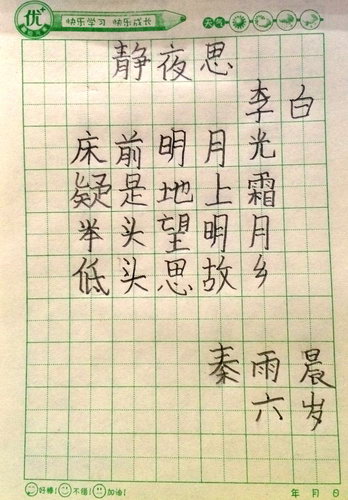 优+
快乐学习 快乐成长
天气
静夜思
李白
床前明月光
疑是地上霜
举头望明月
低头思故乡
秦雨晨
六岁
好棒! 不错! 加油!
年 月 日